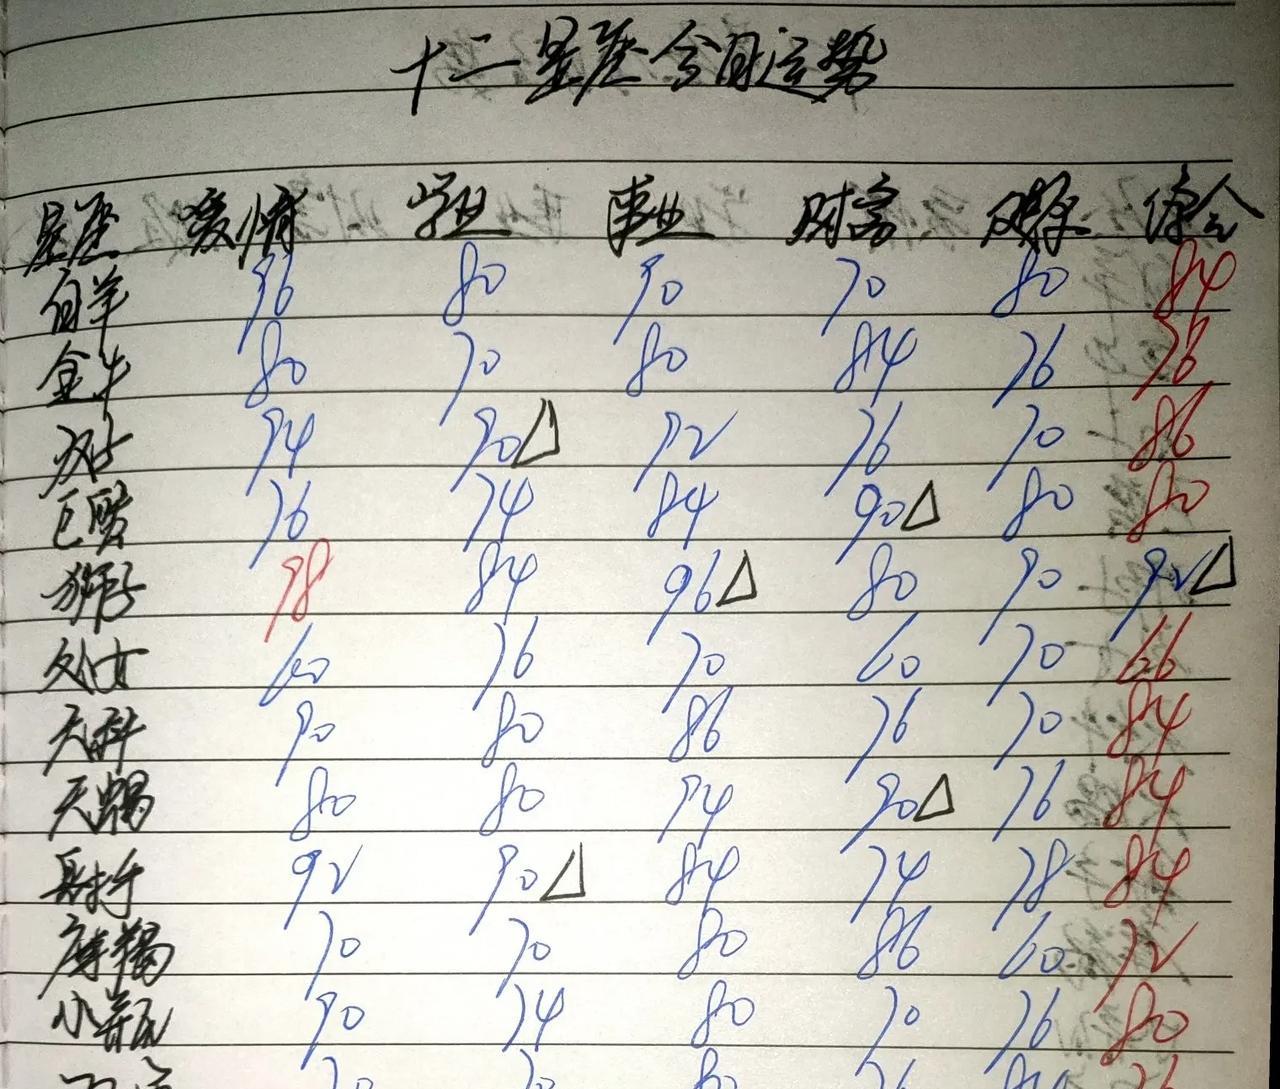 十二星座今日运势
星座 爱情 学业 事业 财富 人际 综合
白羊 96 80 90 70 80 84
金牛 80 70 80 84 76 78
双子 94 90△ 92 76 70 86
巨蟹 76 74 84 90△ 80 80
狮子 98 84 96△ 80 90 92△
处女 60 76 70 60 70 66
天秤 90 80 86 76 70 84
天蝎 80 80 94 90△ 76 84
射手 92 90△ 84 74 78 84
摩羯 70 70 80 86 60 72
小瓶 90 74 80 70 76 80